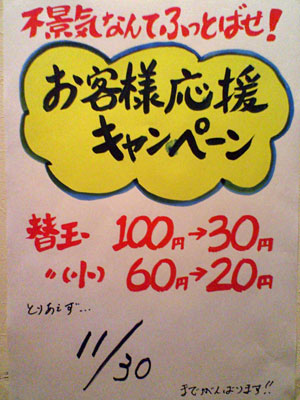 不景気なんてふっとばせ!
お客様応援
キャンペーン
替玉 100円→30円
〃(小) 60円→20円
とりあえず…
11/30
までがんばります!!